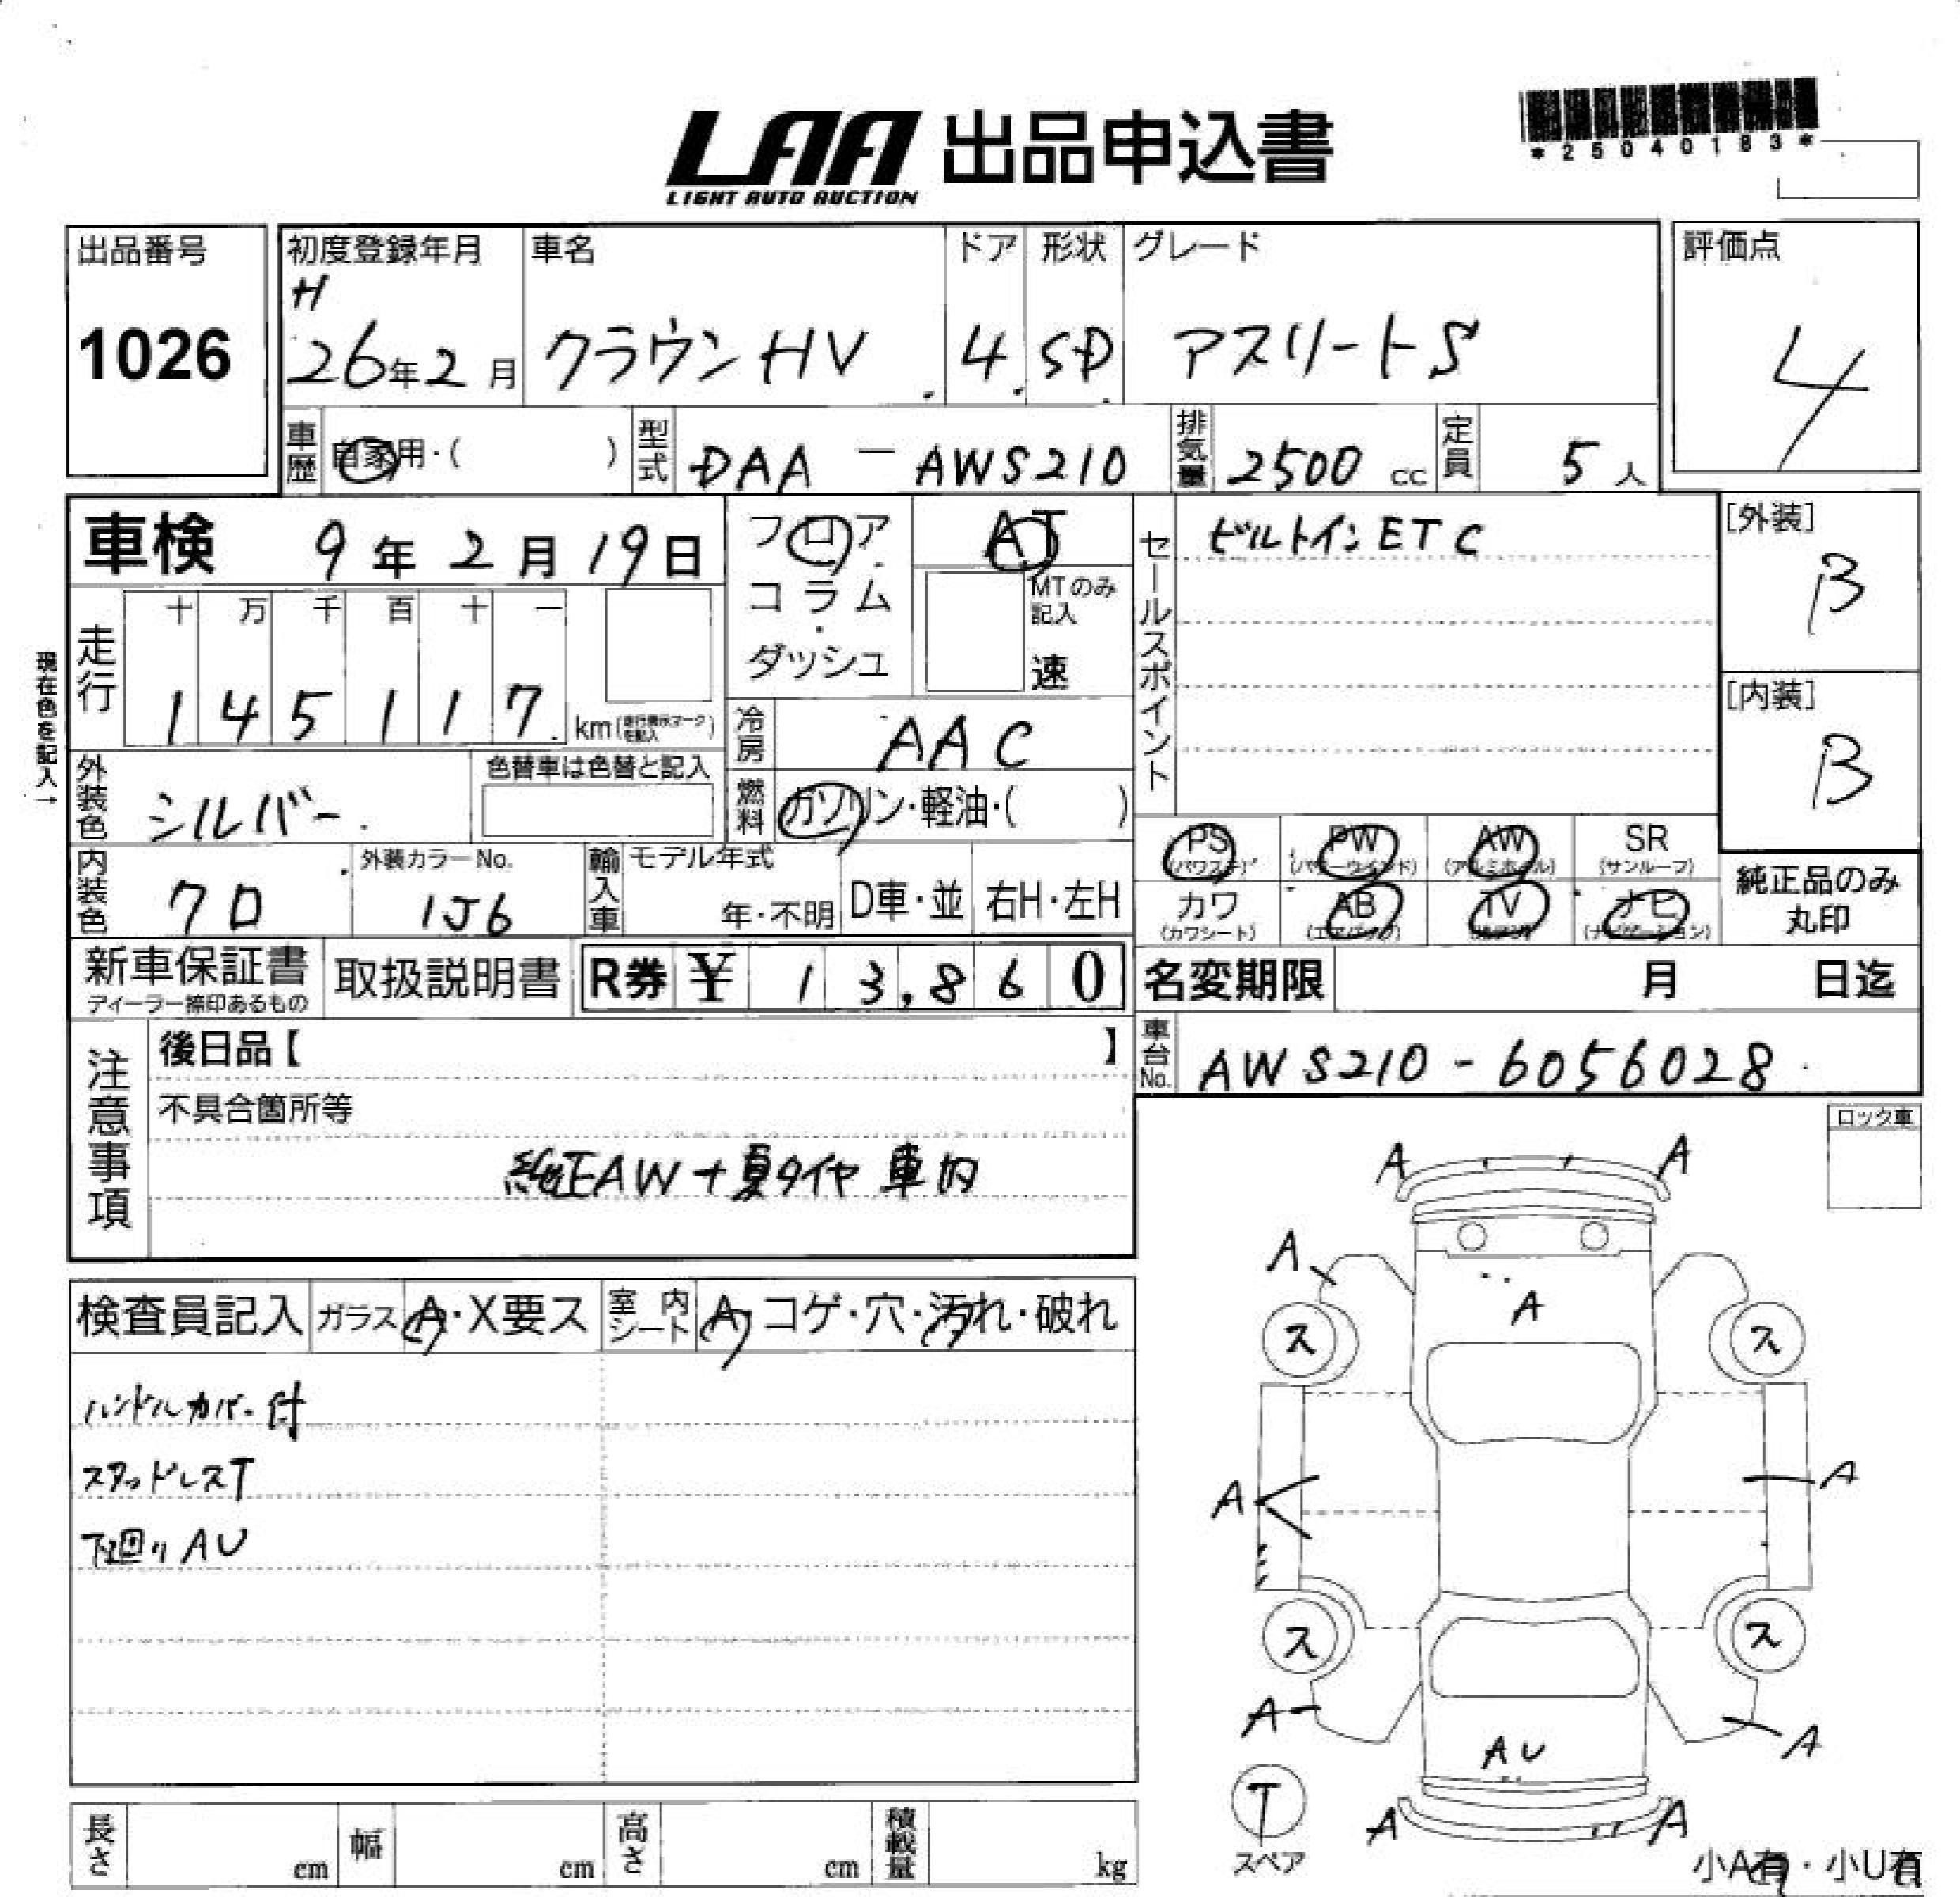 LAA 出品申込書
LIGHT AUTO AUCTION
*25040183*
出品番号
1026
初度登録年月
H
26年2月
車名
クラウンHV
ドア
4
形状
SD
グレード
アスリートS
評価点
4
車歴 自家用・( )
型式 DAA - AWS210
排気量 2500 cc
定員 5人
車検 9年2月19日
走行
十 万 千 百 十 一
1 4 5 1 1 7 km (走行表示マークを記入)
現在色を記入→
外装色 シルバー
色替車は色替と記入
フロア
コラム
ダッシュ
AT
MTのみ記入
速
冷房 AAC
燃料 ガソリン・軽油・( )
セールスポイント
ビルトインETC
[外装]
B
[内装]
B
内装色 クロ
外装カラーNo.
1J6
輸入車
モデル年式
年・不明
D車・並
右H・左H
PS (パワステ)
PW (パワーウインド)
AW (アルミホイル)
SR (サンルーフ)
カワ (カワシート)
AB (エアバック)
TV
ナビ (ナビゲーション)
純正品のみ
丸印
新車保証書
ディーラー捺印あるもの
取扱説明書
R券 ¥ 13,860
名変期限 月 日迄
注意事項
後日品【 】
不具合箇所等
純正AW+夏タイヤ 車内
車台No. AWS210-6056028
ロック車
検査員記入
ガラス A・X要ス
室内シート A・コゲ・穴・汚れ・破れ
ハンドルカバー付
スタッドレスT
下廻りAU
A A
A
A
ス ス
A A
ス ス
A A
AU
A A
T
スペア
小A有・小U有
長さ cm
幅 cm
高さ cm
積載量 kg